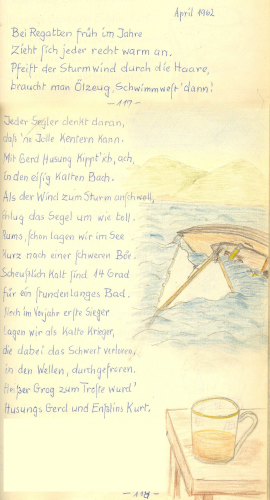 April 1962
Bei Regatten früh im Jahre
Zieht sich jeder recht warm an.
Pfeift der Sturmwind durch die Haare,
braucht man Ölzeug, Schwimmwest' dann!
Jeder Segler denkt daran,
daß 'ne Jolle Kentern Kann.
Mit Gerd Husung Kippt' ich, ach,
in den eisig Kalten Bach.
Als der Wind zum Sturm anschwoll,
schlug das Segel um wie toll.
Bums, schon lagen wir im See
Kurz nach einer schweren Böe.
Scheußlich Kalt sind 14 Grad
für ein stundenlanges Bad.
Noch im Vorjahr erste Sieger
Lagen wir als Kalte Krieger,
die dabei das Schwert verloren,
in den Wellen, durchgefroren.
Heißer Grog zum Troste wurd'
Husungs Gerd und Enßlins Kurt.